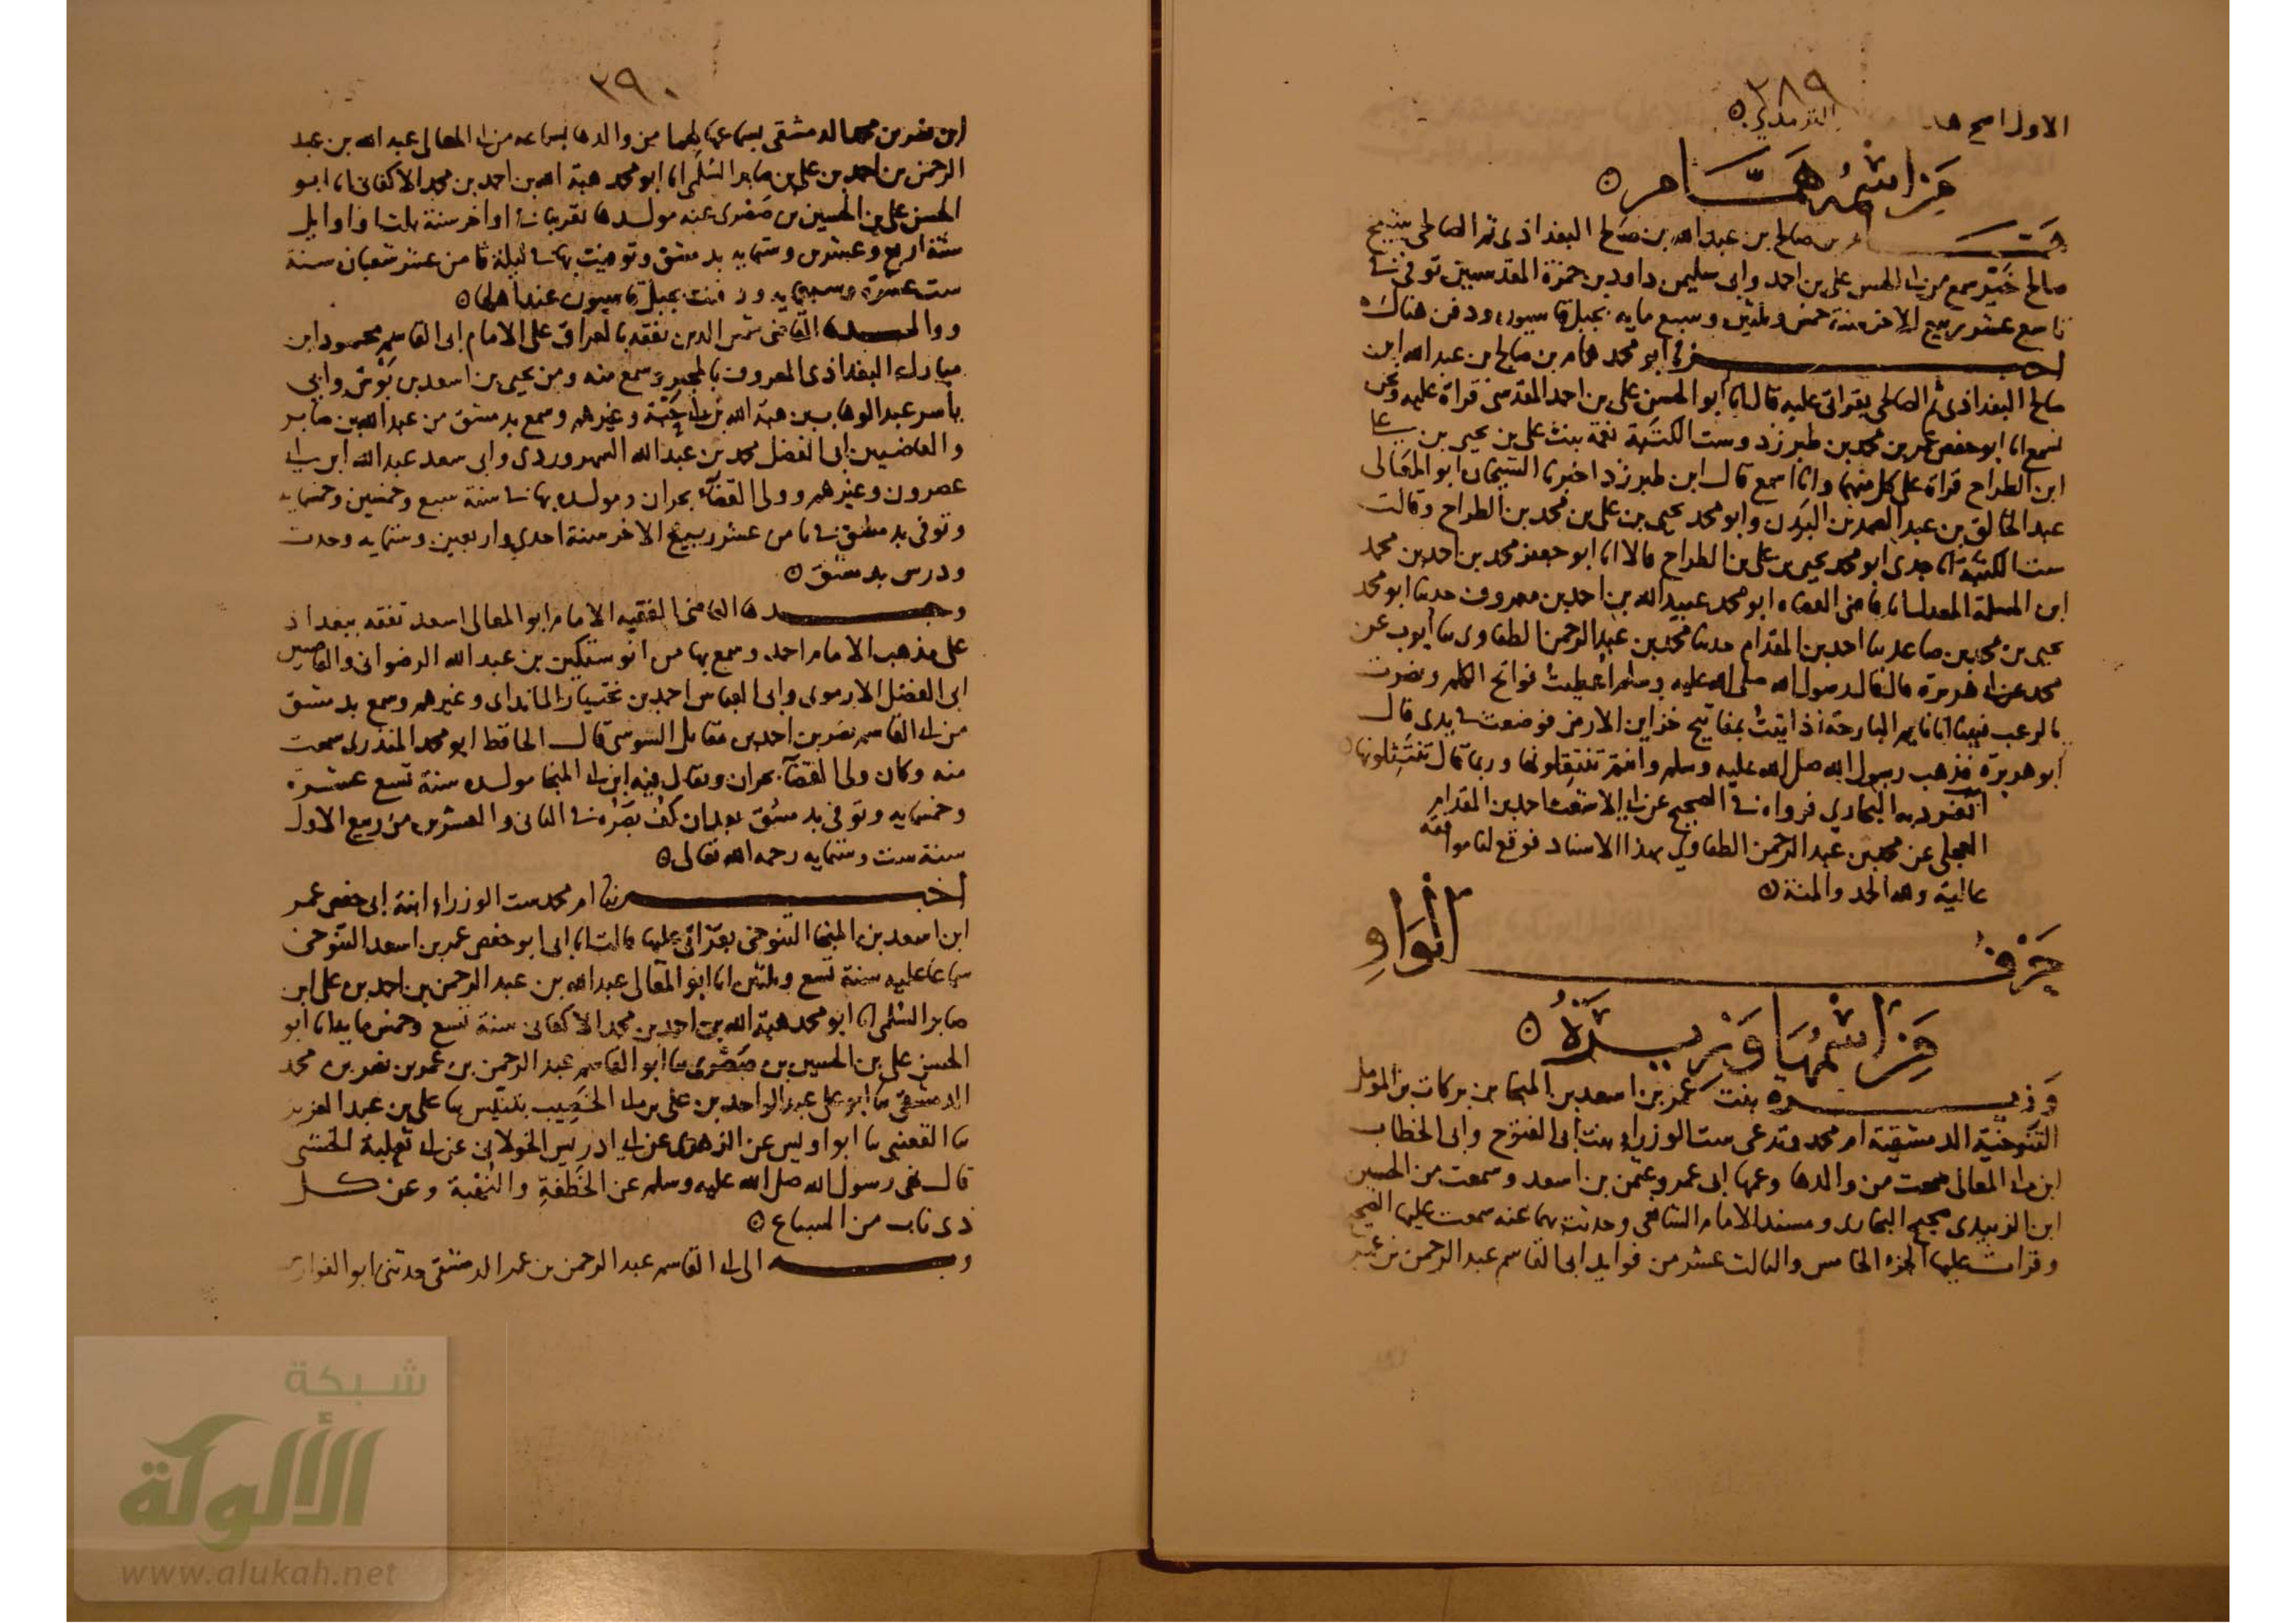 ٢٨٩
الاول صح هـ
الترمذي ه
من اسمه همام ه
همام بن صالح بن عبد الله بن صالح البغداذى ثم الصالحى شيخ
صالح خير سمع من ابى الحسن على بن احمد وابى سليمن داود بن حمزة المقدسيين توفى فى
تاسع عشر ربيع الاخر سنة خمس وثلثين وسبع مايه بجبل قاسيون ودفن هناك ه
اخبرنى ابو محمد همام بن صالح بن عبد الله ابن
صالح البغداذى ثم الصالحى بقراتى عليه قال انا ابو الحسن على بن احمد المقدسى قراة عليه ونحن
نسمع انا ابو حفص عمر بن محمد بن طبرزد وست الكتبة نعمة بنت على بن يحيى بن على
ابن الطراح قراة على كل منهما وانا اسمع قال ابن طبرزد اخبرنا الشيخان ابو المعالى
عبد الخالق بن عبد الصمد بن البدن وابو محمد يحيى بن على بن محمد بن الطراح وقالت
ست الكتبة انا جدى ابو محمد يحيى بن على بن الطراح قالا انا ابو جعفر محمد بن احمد بن محمد
ابن المسلمة المعدل انا قاضى القضاه ابو محمد عبيد الله بن احمد بن معروف حدثنا ابو محمد
يحيى بن محمد بن صاعد ثنا احمد بن المقدام حدثنا محمد بن عبد الرحمن الطفاوى ثنا أيوب عن
محمد عن ابى هريرة قال قال رسول الله صلى الله عليه وسلم أعطيت فواتح الكلم ونصرت
بالرعب فبينا انا نايم البارحة اذ اتيت بمفاتيح خزاين الارض فوضعت فى يدى قال
أبو هريرة فذهب رسول الله صلى الله عليه وسلم وانتم تنتقلونها وربما قال تنتثلونها ه
انفرد به البخاري فرواه فى الصحيح عن ابى الاشعث احمد بن المقدام
العجلى عن محمد بن عبد الرحمن الطفاوي بهذا الاسناد فوقع لنا موافقة
عالية ولله الحمد والمنة ه
حرف الواو
من اسمها وزيرة ه
وزيرة بنت عمر بن اسعد بن المنجا بن بركات بن المومل
التنوخية الدمشقية ام محمد وتدعى ست الوزراء بنت ابى الفتوح وابى الخطاب
ابن ابى المعالى سمعت من والدها وعمها ابى عمرو عثمن بن اسعد وسمعت من الحسين
ابن الزبيدى صحيح البخارى ومسند الامام الشافعى وحدثت بهما عنه سمعت عليها الصحيح
وقرات عليها الجزء الخامس والثالث عشر من فوايد ابى القاسم عبد الرحمن بن عمر
٢٩٠
ابن نصر بن محمد الدمشقى بسماعها لهما من والدها بسماعه من ابى المعالى عبد الله بن عبد
الرحمن بن احمد بن على بن صابر السلمى انا ابو محمد هبة الله بن احمد بن محمد الاكفانى انا ابو
الحسن على بن الحسين بن صصرى عنه مولدها تقريبا فى اواخر سنة ثلث او اوايل
سنة اربع وعشرين وستمايه بدمشق وتوفيت بها فى ليلة ثامن عشر شعبان سنة
ست عشرة وسبعمايه ودفنت بجبل قاسيون عند اهلها ه
ووالدها القاضى شمس الدين تفقه بالعراق على الامام ابى القاسم محمود ابن
مبارك البغداذى المعروف بالمجير وسمع منه ومن يحيى بن اسعد بن بوش وابي
ياسر عبد الوهاب بن هبة الله بن ابى حبة وغيرهم وسمع بدمشق من عبد الله بن صابر
والقاضيين ابى الفضل محمد بن عبد الله الشهروردى وابى سعد عبد الله ابن ابى
عصرون وغيرهم وولى القضآء بحران ومولده بها فى سنة سبع وخمسين وخمسمايه
وتوفى بدمشق فى ثامن عشر ربيع الاخر سنة احدى واربعين وستمايه وحدث
ودرس بدمشق ه
وجدها القاضى الفقيه الامام ابو المعالى اسعد تفقه ببغداذ
على مذهب الامام احمد وسمع بها من انوشتكين بن عبد الله الرضوانى والقاضيين
ابى الفضل الارموى وابى العباس احمد بن بختيار الماندائى وغيرهم وسمع بدمشق
من ابى القاسم نصر بن احمد بن مقاتل السوسى قال الحافظ ابو محمد المنذرى سمعت
منه وكان ولى القضآء بحران ويقال فيه ابن ابى المنجا مولده سنة تسع عشرة
وخمسمايه وتوفى بدمشق بعد ان كف بصره فى الثانى والعشرين من ربيع الاول
سنة ست وستمايه رحمه الله تعالى ه
اخبرتنا ام محمد ست الوزراء ابنة ابى حفص عمر
ابن اسعد بن المنجا التنوخى بقراتى عليها قالت انا ابى ابو حفص عمر بن اسعد التنوخى
سماعا عليه سنة تسع وثلثين انا ابو المعالى عبد الله بن عبد الرحمن بن احمد بن على ابن
صابر السلمى انا ابو محمد هبة الله بن احمد بن محمد الاكفانى سنة تسع وخمس مايه انا ابو
الحسن على بن الحسين بن صصرى ثنا ابو القاسم عبد الرحمن بن عمر بن نصر بن محمد
الدمشقى ثنا ابو على عبد الواحد بن على بن ابى الخصيب بتنيس ثنا على بن عبد العزيز
ثنا القعنبى ثنا ابو اويس عن الزهرى عن ابى ادريس الخولانى عن ابى ثعلبة الخشنى
قال نهى رسول الله صلى الله عليه وسلم عن الخطفة والنهبة وعن كل
ذى ناب من السباع ه
وبه الى ابى القاسم عبد الرحمن بن عمر الدمشقى حدثنى ابو الفوارس
شبكة
الألوكة
www.alukah.net